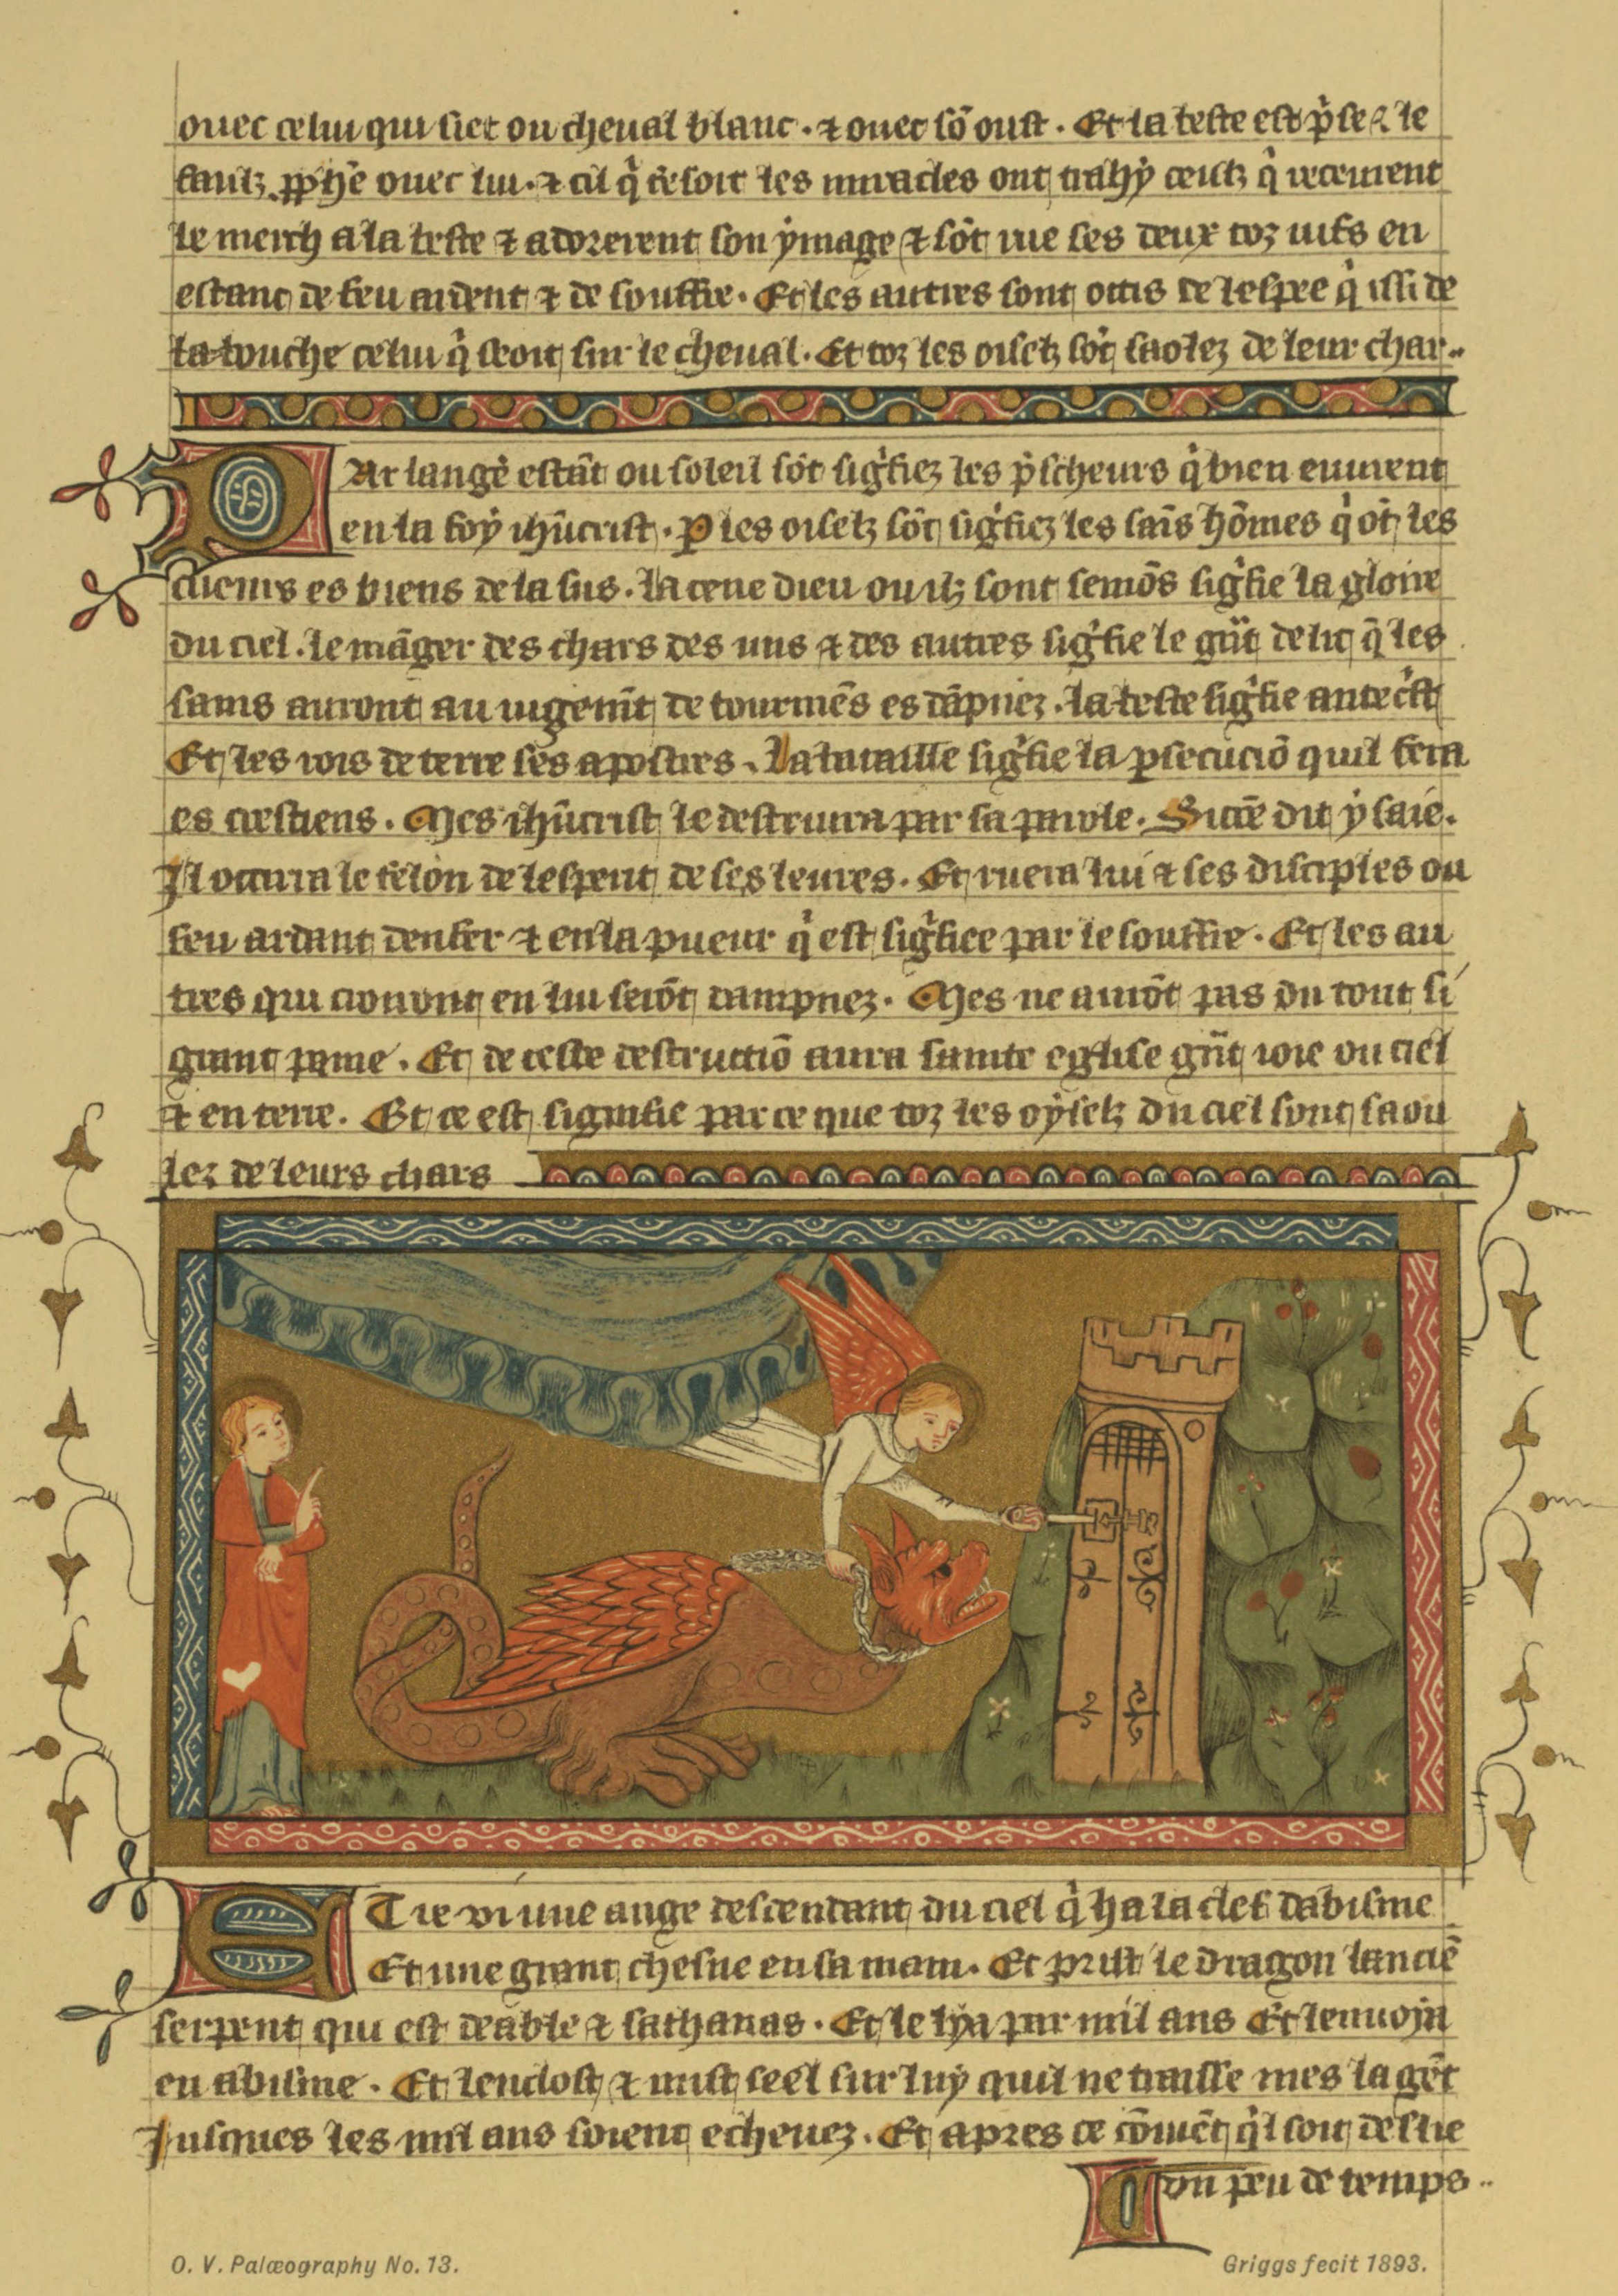 ouec celui qui siet ou cheual blanc . ⁊ ouec sō oust . Et la beste est p̍se ⁊ le
faulz ꝓphē ouec lui . ⁊ cil q̍ fesoit les miracles ont trahy ceulz q̍ receurent
le merch a la beste ⁊ adorerent son ymage ⁊ sōt rue ses deux toz uifs en
estanc de feu ardent ⁊ de souffre . Et les autres sont occis de lespee q̍ issi de
la bouche celui q̍ seoit sur le cheual . Et toz les oiselz sōt saolez de leur char ..
Par lange estāt ou soleil sōt sig̍fiez les p̍scheurs q̍ bien eurent
en la foy ihūcrist . P les oiselz sōt sig̍fiez les sais hōmes q̍ ōt les
es biens de la sus . la cene dieu ou ilz sont semōs sig̍fie la gloire
du ciel . le māger des chars des uns ⁊ des autres sig̍fie le gūt delit q̄ les
sains auront au iugemīt de tourmēs es dāpnez . la beste sig̍fie antec̍st
Et les rois de terre ses apostres . La bataille sig̍fie la ꝑsecuciō quil fera
es crestiens . Mes ihūcrist le destruira par sa parole . Sicōe dit ysaie .
Il occirra le felon de lesperit de ses leures . Et ruera lui ⁊ ses disciples ou
feu ardant denfer ⁊ en la pueur q̍ est sig̍fiee par le souffre . Et les au
tres qui croiront en lui serōt dampnez . Mes ne aurōt pas du tout si
grant paine . Et de ceste destructiō aura sainte eglise gn̄t ioie ou ciel
⁊ en terre . Et ce est signifie par ce que toz les oyselz du ciel sont saou
lez de leurs chars
ET ie vi une ange descendant du ciel q̍ ha la clef dabisme
Et une grant chesne en sa main . Et prist le dragon lanciē
serpent qui est deable ⁊ sathanas . Et le lya par mil ans Et lenuoya
en abisme . Et lenclost ⁊ mist seel sur luy quil ne traisse mes la gēt
Jusques les mil ans soient echeuez . Et apres ce cōuiēt q̍l soit deslie
Un peu de temps ..
O. V. Palæography No. 13.
Griggs fecit 1893.